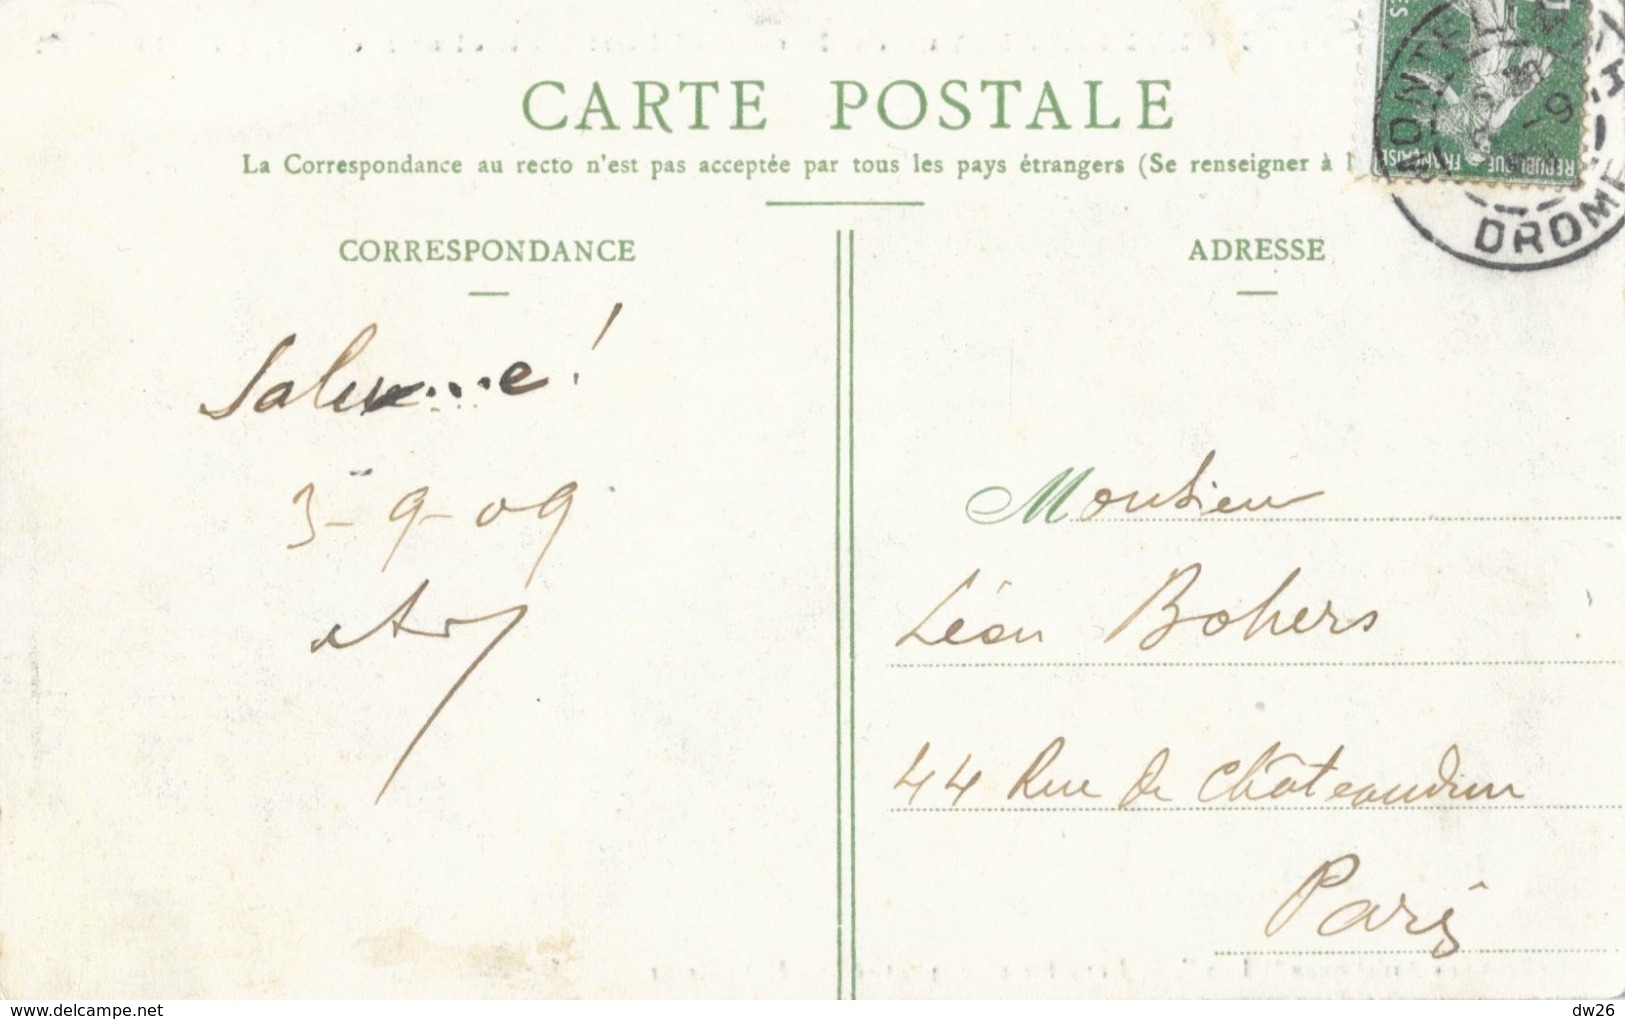 CARTE POSTALE
La Correspondance au recto n'est pas acceptée par tous les pays étrangers (Se renseigner à l
CORRESPONDANCE
ADRESSE
MONTÉLIMAR
DROME
RÉPUBLIQUE FRANÇAISE
3-9-09
Monsieur
Léon Bohers
44 Rue de Châteaudun
Paris
www.delcampe.net
dw26